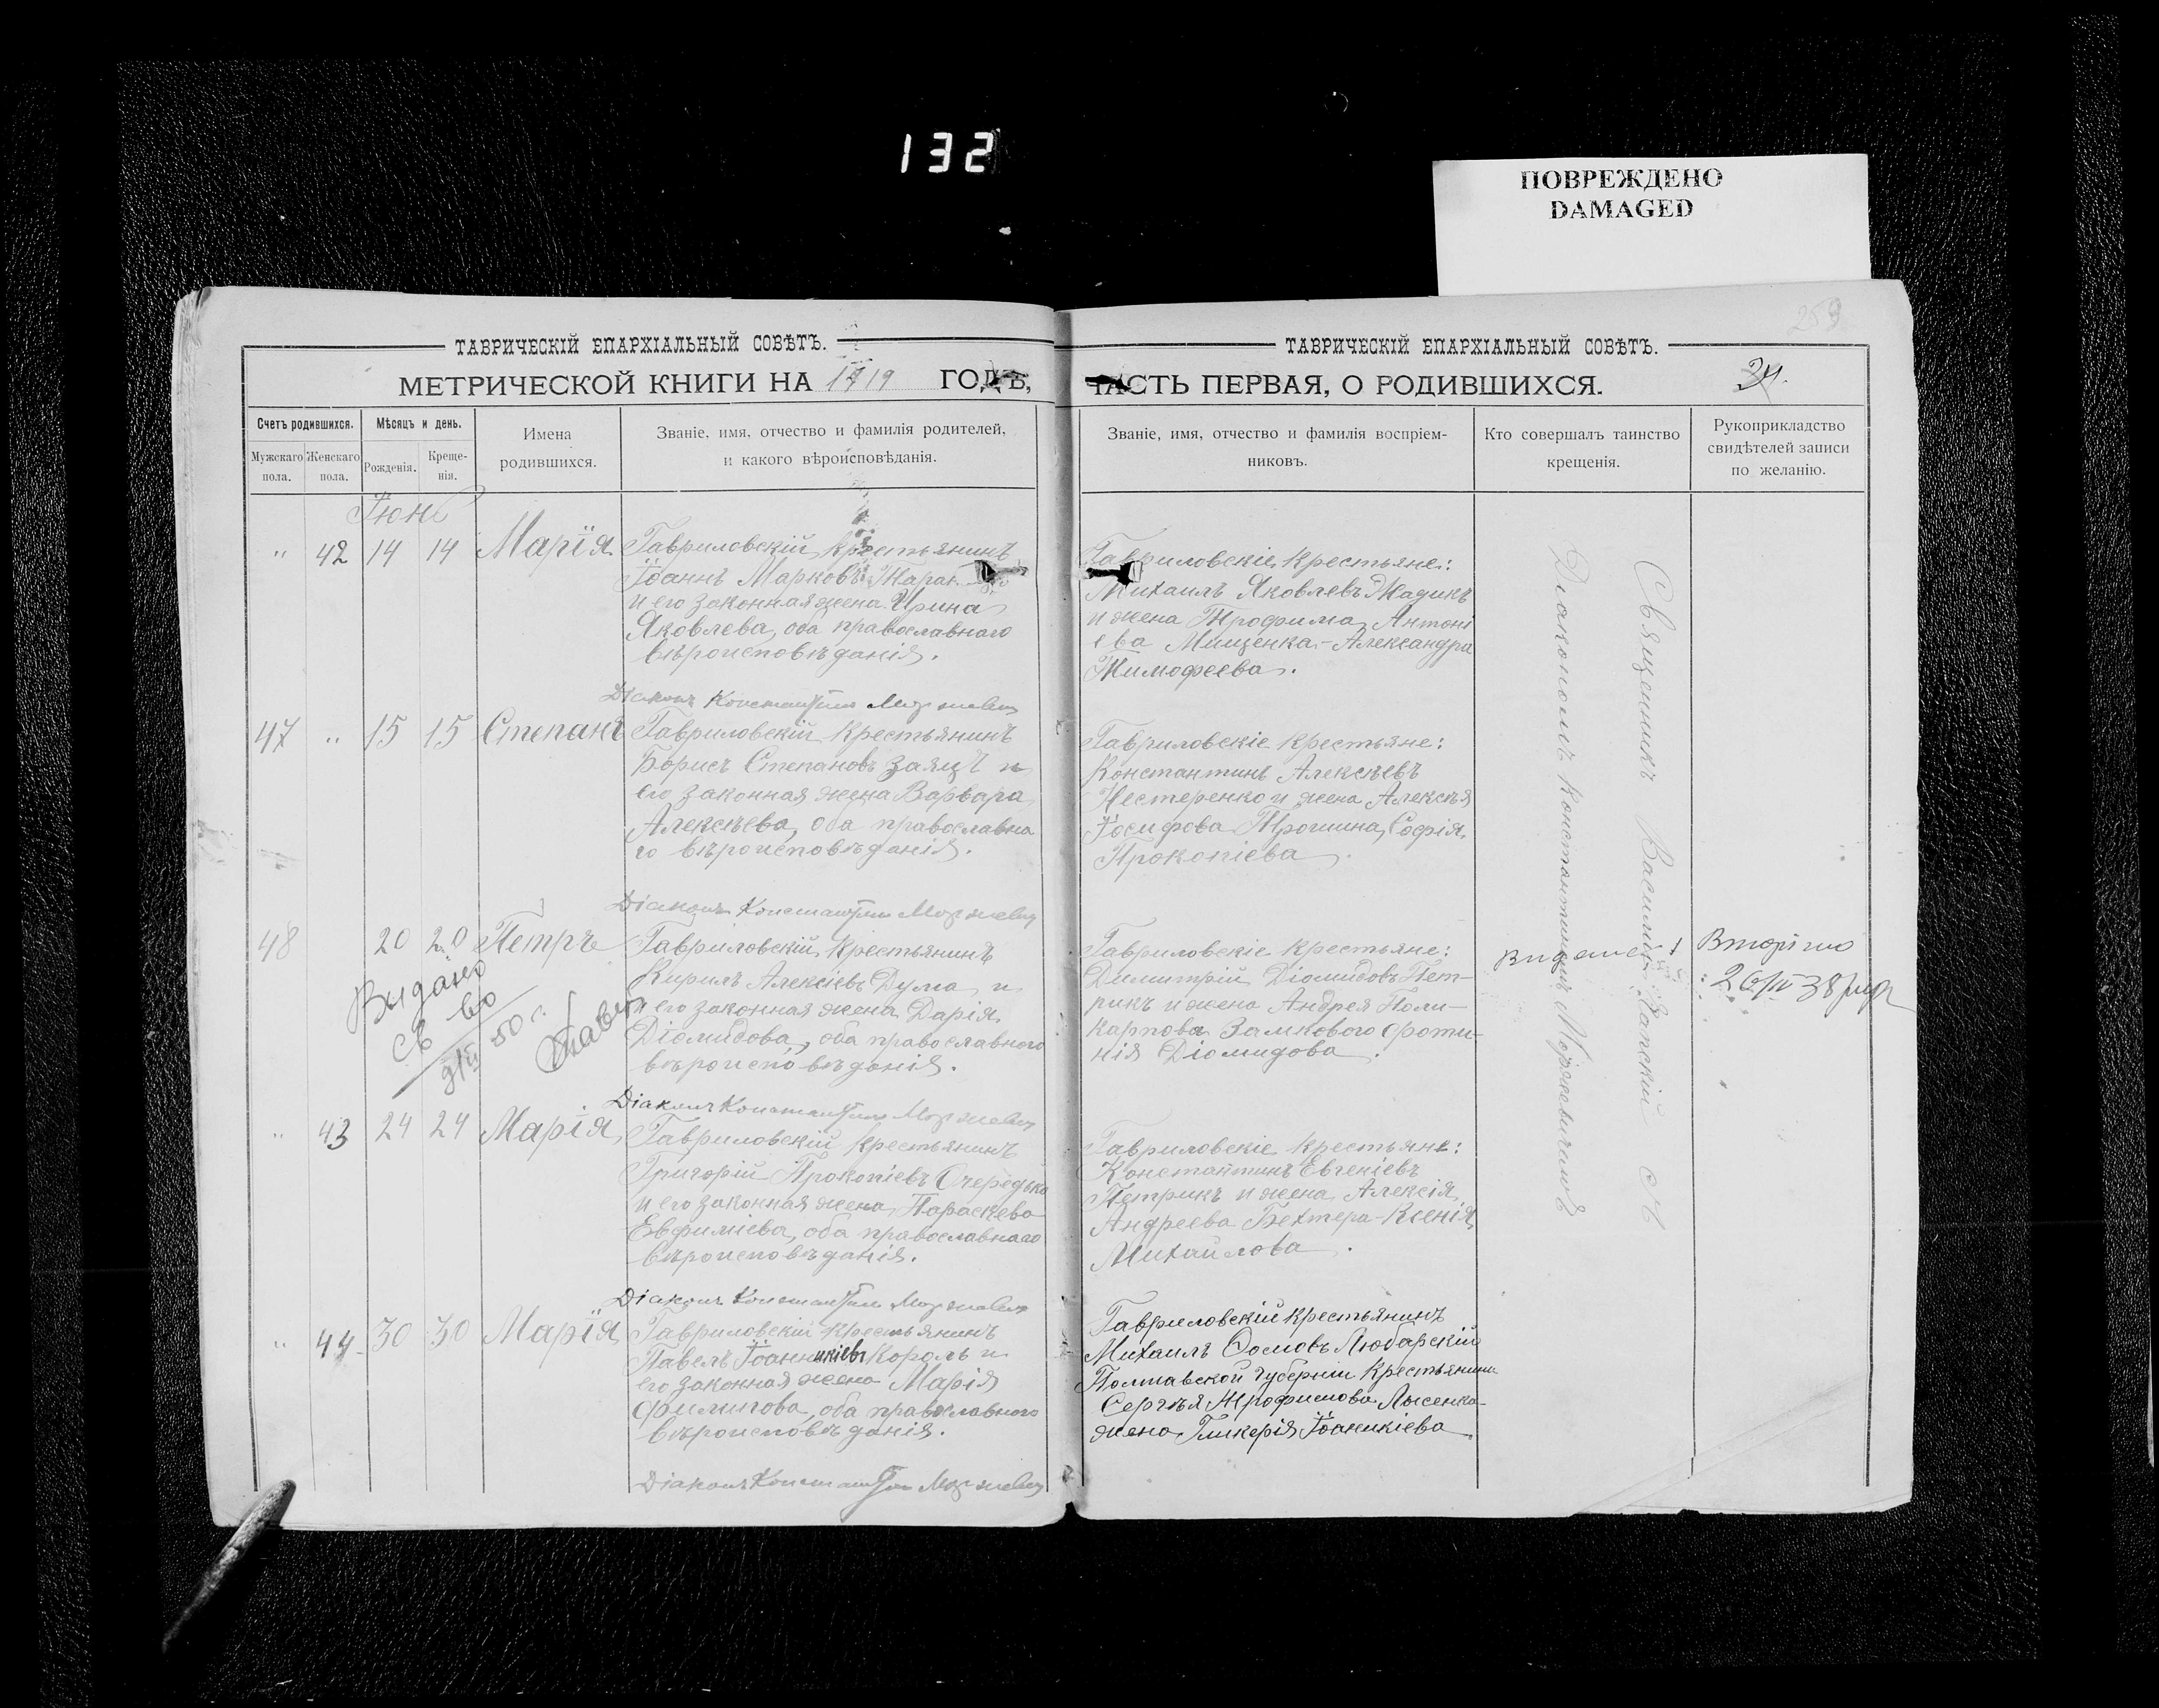 132
ПОВРЕЖДЕНО
DAMAGED
259
ТАВРИЧЕСКІЙ ЕПАРХІАЛЬНЫЙ СОВѢТЪ.
МЕТРИЧЕСКОЙ КНИГИ НА 1919 ГОДЪ,
Счетъ родившихся.
Мѣсяцъ и день.
Мужскаго пола.
Женскаго пола.
Рожденія.
Креще-
нія.
Имена
родившихся.
Званіе, имя, отчество и фамилія родителей,
и какого вѣроисповѣданія.
Іюнь
" 42 14 14 Марія
Гавриловскій крестьянинъ
Іоаннъ Марковъ
и его законная жена Ирина
Яковлева, оба православнаго
вѣроисповѣданія.
Діаконъ Константинъ Моржевич
47 " 15 15 Степанъ
Гавриловскій крестьянинъ
Борисъ Степановъ Заяцъ и
его законная жена Варвара
Алексѣева, оба православна
го вѣроисповѣданія.
Діаконъ Константинъ Моржевич
48 20 20 Петръ
Гавриловскій крестьянинъ
Кирилъ Алексіевъ Дума и
и его законная жена Дарія
Діомидова, оба православного
вѣроиспо вѣданія.
Выдано
св во
50 г.
Діаконъ Константинъ Моржевич
" 43 24 24 Марія
Гавриловскій крестьянинъ
Григорій Прокопіевъ Очередько
и его законная жена Параскева
Евфиміева, оба православнаго
вѣроисповѣданія.
Діаконъ Константинъ Моржевич
" 44 30 30 Марія
Гавриловскій крестьянинъ
Павелъ Іоанникіевъ Король и
его законная жена Марія
Филипова, оба православного
вѣроисповѣданія.
Діаконъ Константинъ Моржевич
ТАВРИЧЕСКІЙ ЕПАРХІАЛЬНЫЙ СОВѢТЪ.
ЧАСТЬ ПЕРВАЯ, О РОДИВШИХСЯ.
Званіе, имя, отчество и фамилія воспріем-
никовъ.
Кто совершалъ таинство
крещенія.
Рукоприкладство
свидѣтелей записи
по желанію.
Гавриловскіе крестьяне:
Михаилъ Яковлевъ Жадикъ
и жена Трофима Антоні
ева Мищенка-Александра
Тимофеева.
Гавриловскіе крестьяне:
Константинъ Алексѣевъ
Нестеренко и жена Алексѣя
Іосифова Трошина, Софія
Прокопіева.
Гавриловскіе крестьяне:
Димитрій Діомидовъ Пет-
рикъ и жена Андрея Поли-
карпова Замкового Фоти-
нія Діомидова.
Гавриловскіе крестьяне:
Константинъ Евгеніевъ
Петрикъ и жена Алексія
Андреева Бехтера-Ксенія
Михайлова.
Гавриловскій крестьянинъ
Михаилъ Ѳомовъ Любарскій
Полтавской губерніи крестьянина
Сергѣя Трофимова Лысенка-
жена Гликерія Іоаникіева
Священникъ Василій
Діакономъ Константиномъ Моржевичемъ
Вторічно
26/IV 38